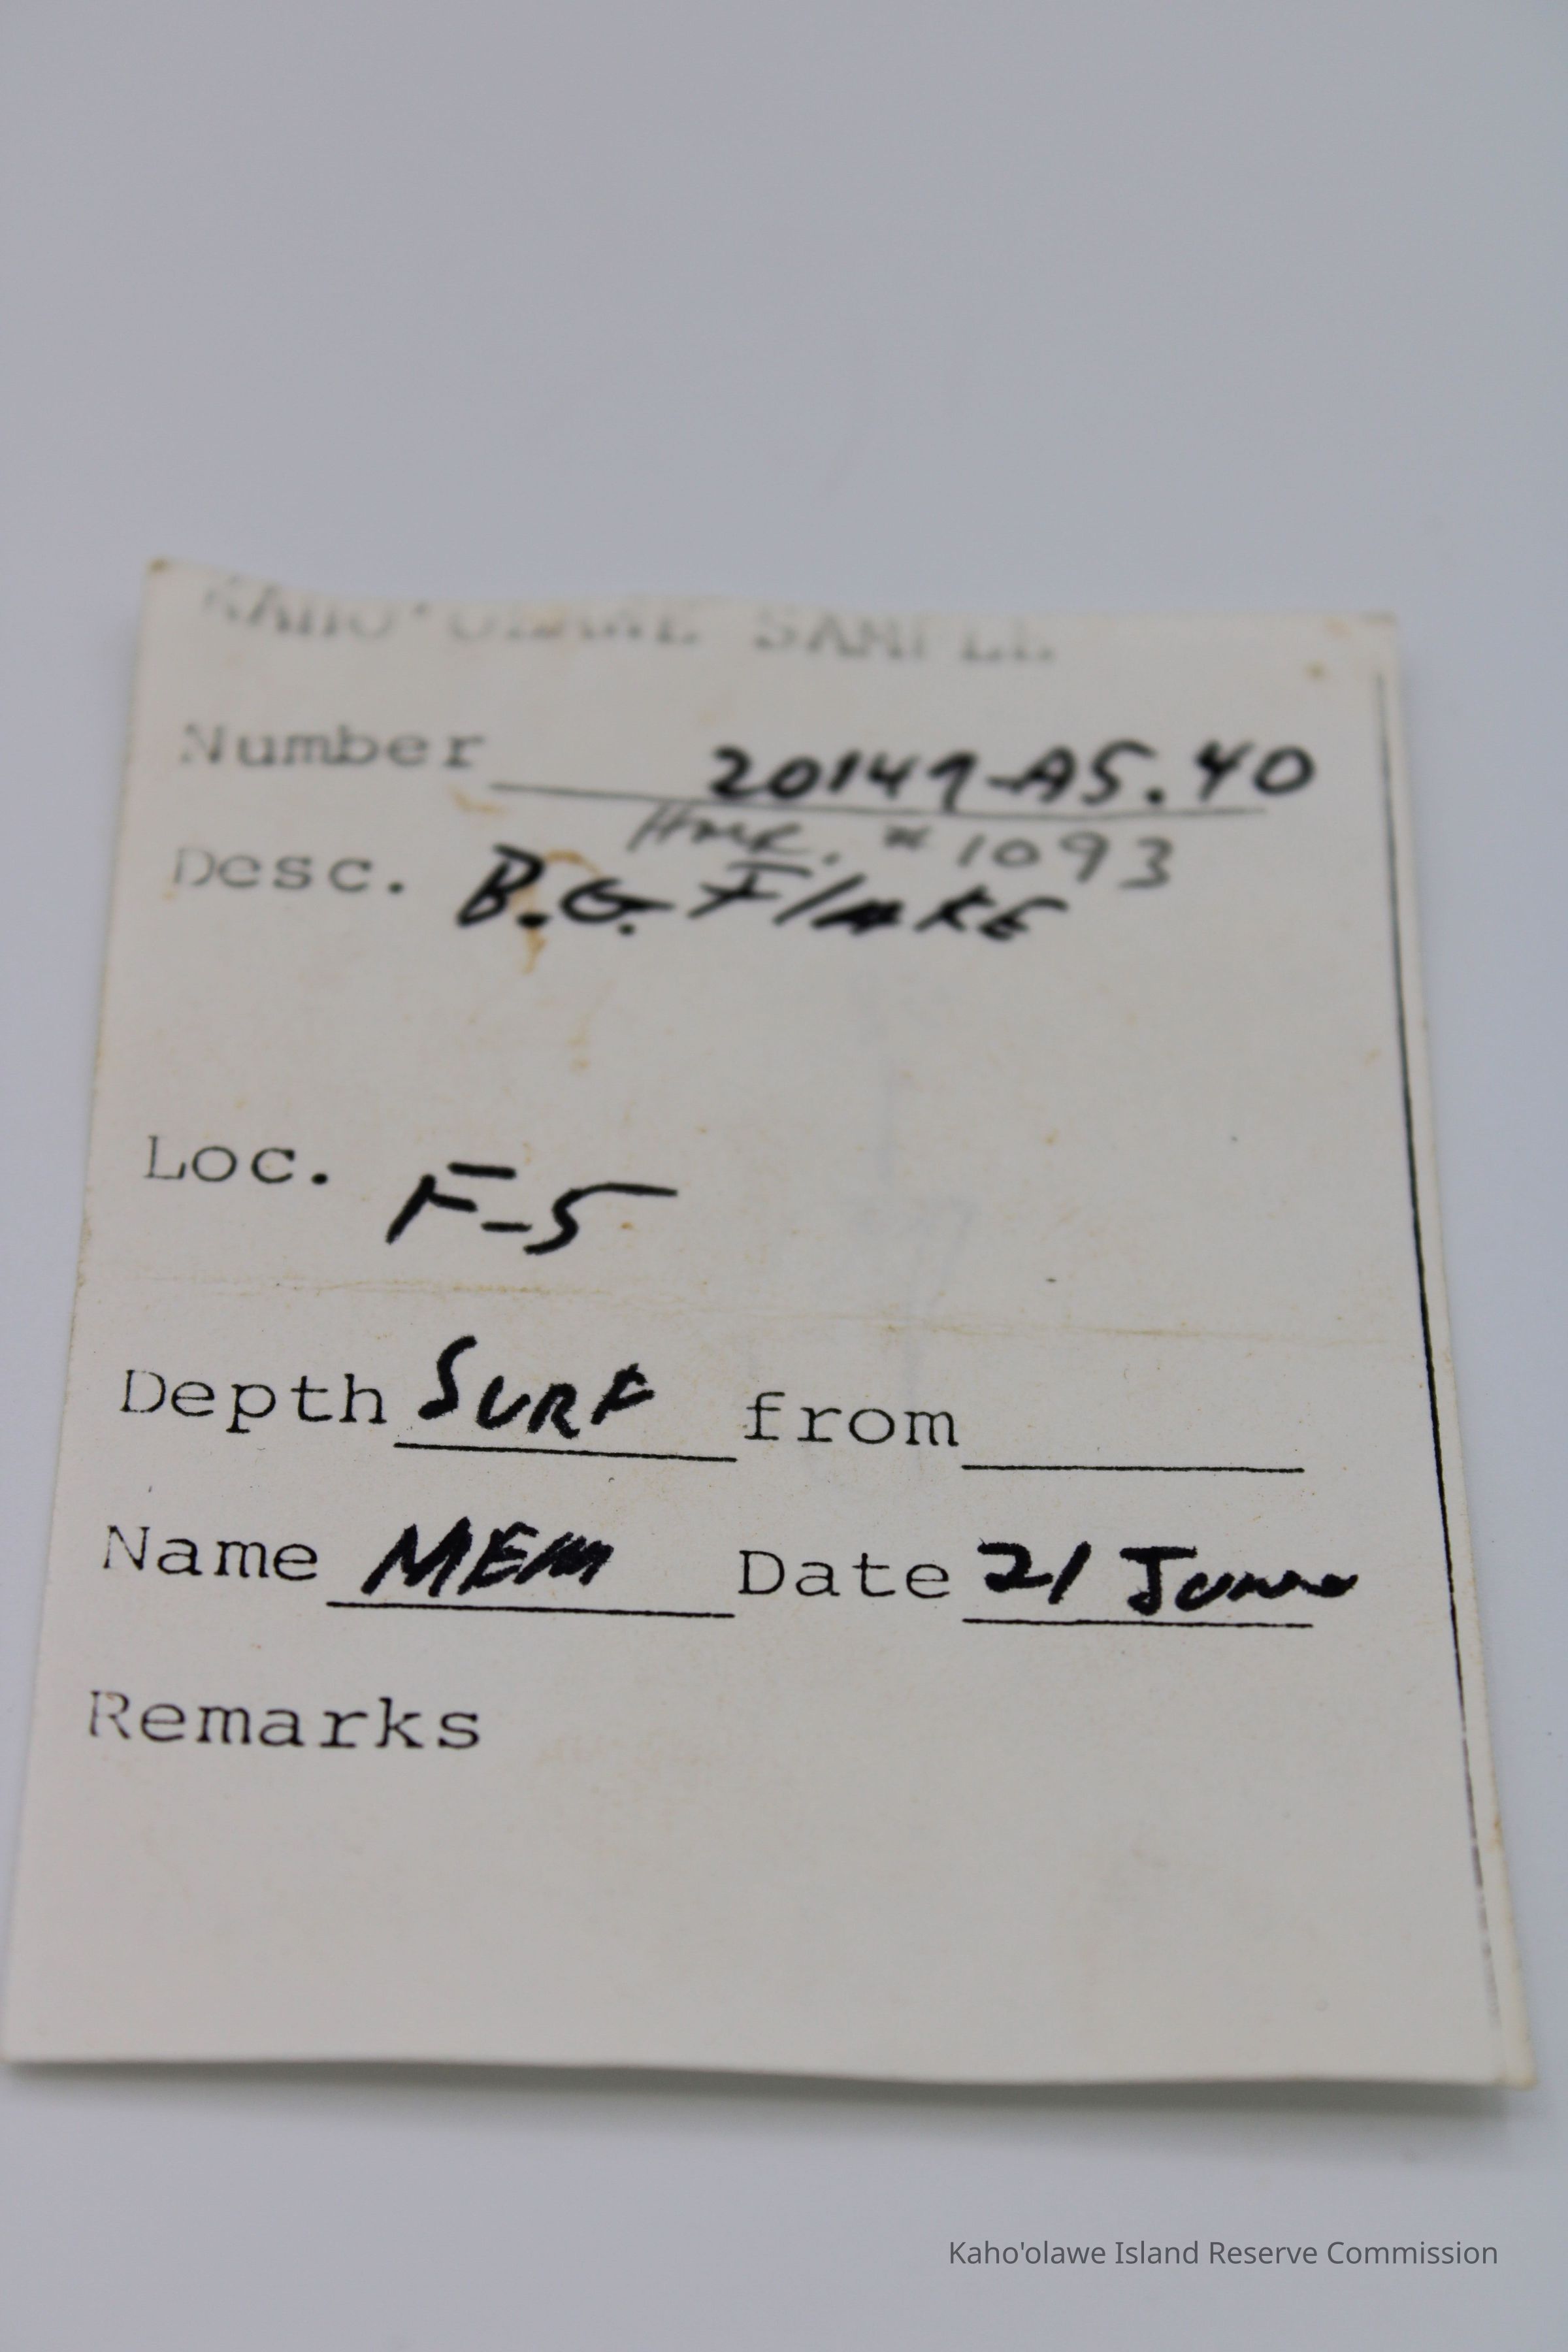 KAHO'OLAWE SAMPLE
Number 20149-A5.40
#1093
Desc. B.G. Flake
Loc. F-5
Depth SURF from
Name MEM Date 21 June
Remarks
Kaho'olawe Island Reserve Commission